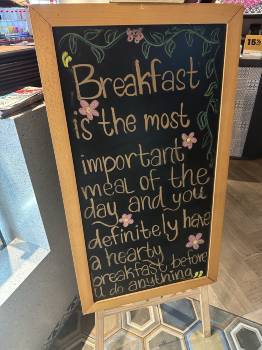 Breakfast
is the most
important
meal of the
day and you
definitely have
a hearty
breakfast before
u do anything
15%